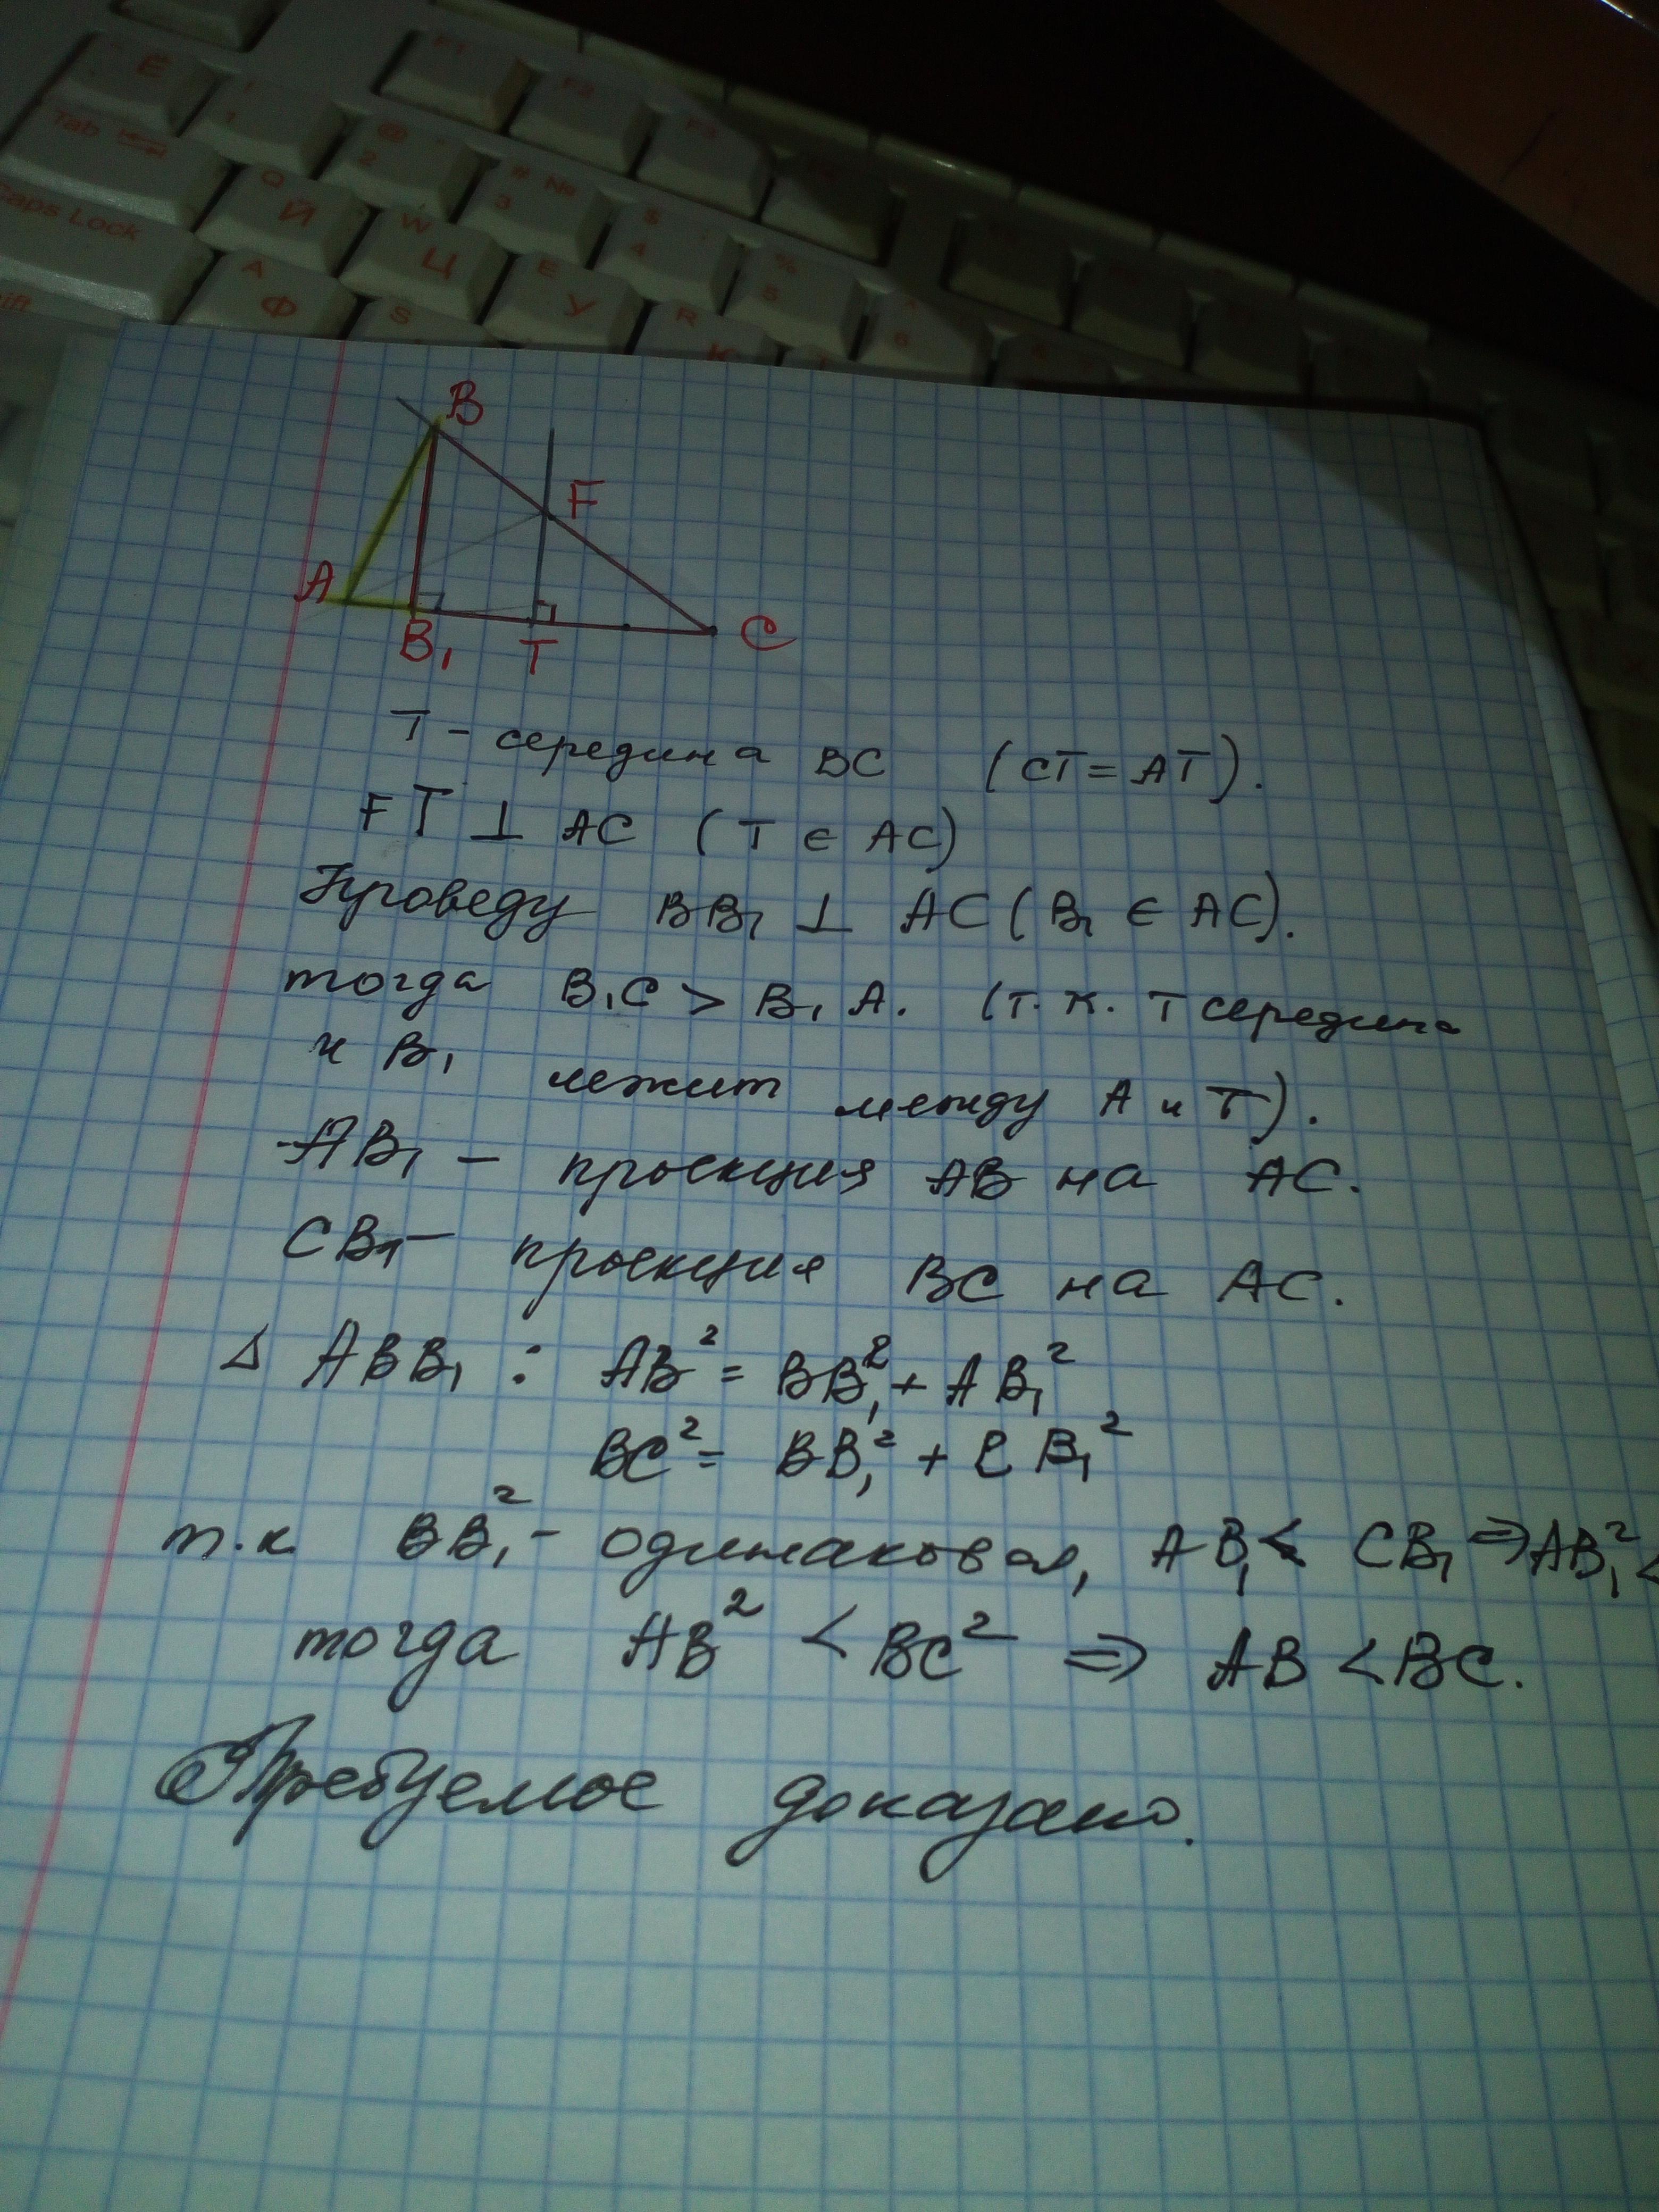 Ё
F1
F2
F3
Tab
!
1
@
2
"
#
№
3
$
4
%
5
6
Caps Lock
Q
Й
W
Ц
E
У
R
К
A
Ф
S
B
F
A
B₁
T
C
T - середина BC (CT = AT).
FT ⊥ AC (T ∈ AC)
Проведу BB₁ ⊥ AC (B₁ ∈ AC).
тогда B₁C > B₁A. (т.к. T середина
и B₁ лежит между A и T).
AB₁ — проекция AB на AC.
CB₁ — проекция BC на AC.
Δ ABB₁ : AB² = BB₁² + AB₁²
BC² = BB₁² + CB₁²
т.к BB₁² - одинаковая, AB₁ < CB₁ ⇒ AB₁² <
тогда AB² < BC² ⇒ AB < BC.
Требуемое доказано.